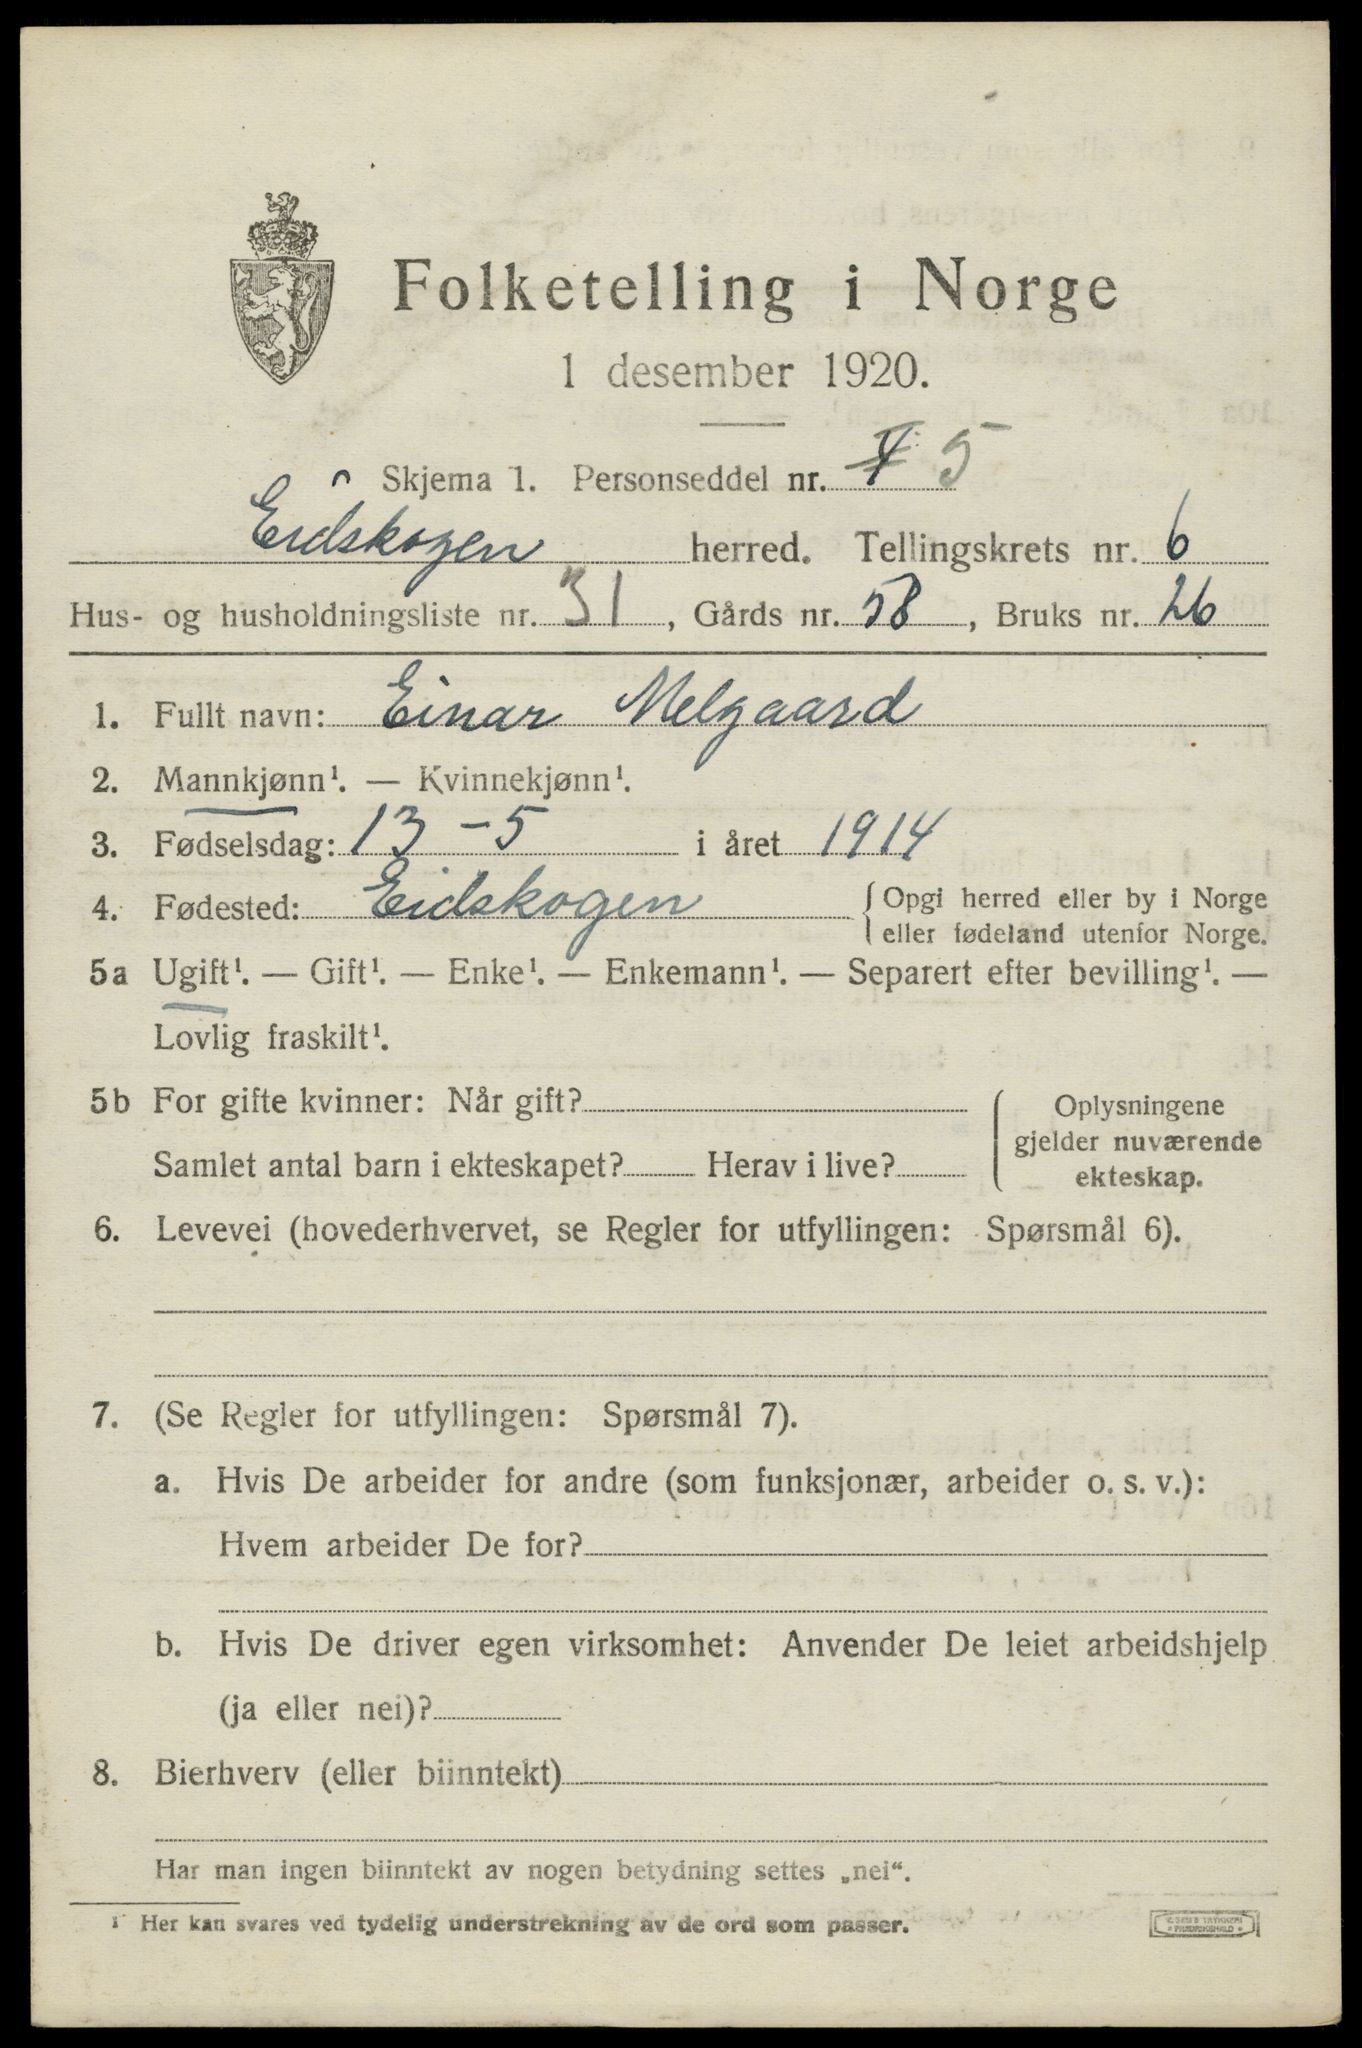 Folketelling i Norge
1 desember 1920.
Skjema 1. Personseddel nr. V 5
Eidskogen herred. Tellingskrets nr. 6
Hus- og husholdningsliste nr. 31, Gårds nr. 58, Bruks nr. 26
1. Fullt navn: Einar Melgaard
2. Mannkjønn¹. — Kvinnekjønn¹.
3. Fødselsdag: 13-5 i året 1914
4. Fødested: Eidskogen { Opgi herred eller by i Norge
eller fødeland utenfor Norge.
5a Ugift¹. — Gift¹. — Enke¹. — Enkemann¹. — Separert efter bevilling¹. —
Lovlig fraskilt¹.
5b For gifte kvinner: Når gift? Oplysningene
gjelder nuværende
Samlet antal barn i ekteskapet? Herav i live? ekteskap.
6. Levevei (hovederhvervet, se Regler for utfyllingen: Spørsmål 6).
7. (Se Regler for utfyllingen: Spørsmål 7).
a. Hvis De arbeider for andre (som funksjonær, arbeider o. s. v.):
Hvem arbeider De for?
b. Hvis De driver egen virksomhet: Anvender De leiet arbeidshjelp
(ja eller nei)?
8. Bierhverv (eller biinntekt)
Har man ingen biinntekt av nogen betydning settes „nei“.
¹ Her kan svares ved tydelig understrekning av de ord som passer.